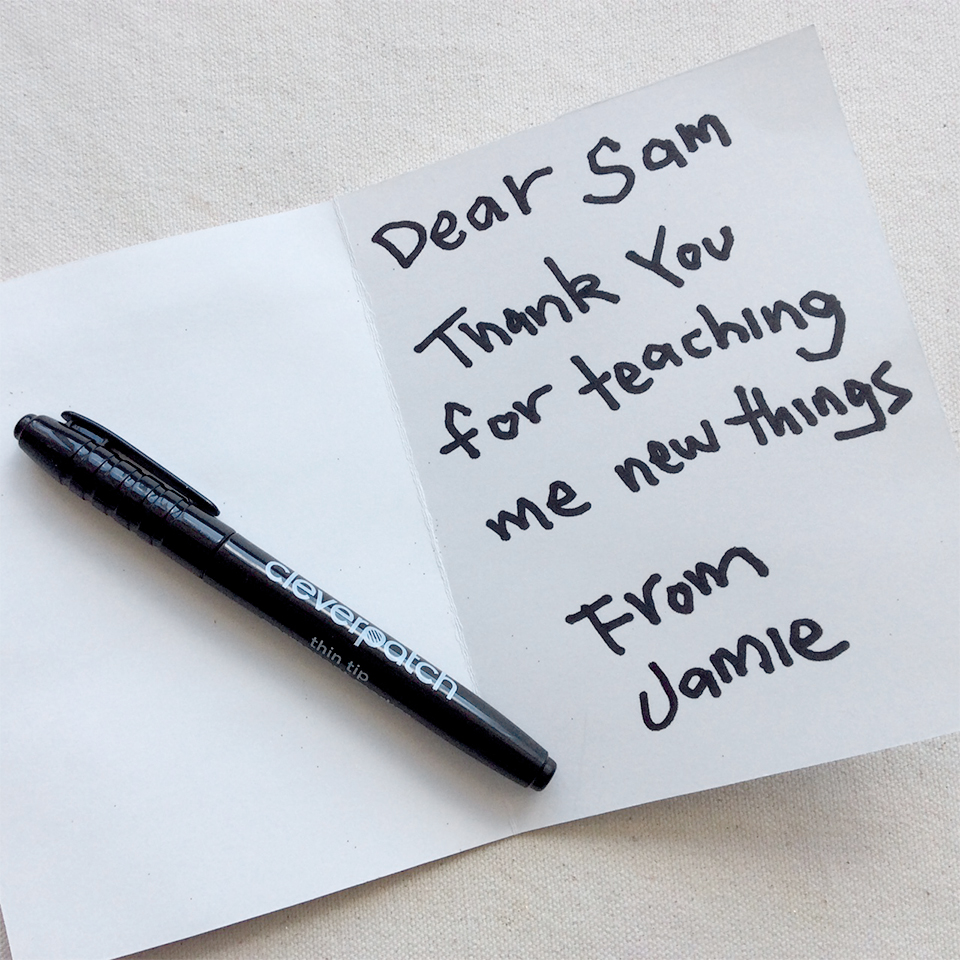 Dear Sam
Thank You
for teaching
me new things
From
Jamie
cleverpatch
thin tip